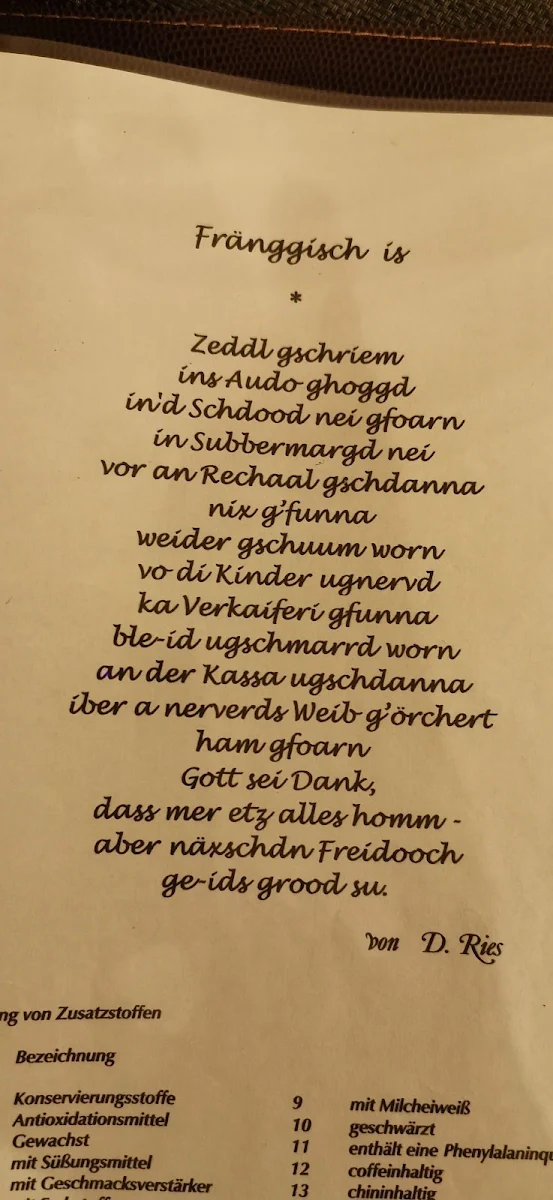 Fränggisch is
*
Zeddl gschriem
ins Audo ghoggd
in'd Schdood nei gfoarn
in Subbermargd nei
vor an Rechaal gschdanna
nix g'funna
weider gschuum worn
vo di Kinder ugnervd
ka Verkaiferi gfunna
ble-id ugschmarrd worn
an der Kassa ugschdanna
iber a nerverds Weib g'örchert
ham gfoarn
Gott sei Dank,
dass mer etz alles homm -
aber näxschdn Freidooch
ge-ids grood su.
von D. Ries
ng von Zusatzstoffen
Bezeichnung
Konservierungsstoffe 9 mit Milcheiweiß
Antioxidationsmittel 10 geschwärzt
Gewachst 11 enthält eine Phenylalaninqu
mit Süßungsmittel 12 coffeinhaltig
mit Geschmacksverstärker 13 chininhaltig